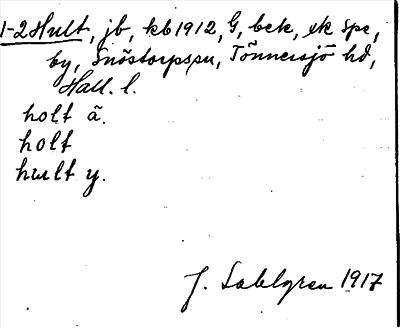 1-2 Hult, jb, kb 1912, G, bek, ek spe,
by, Snöstorps sn, Tönnersjö hd,
Hall. l.
holt ã.
holt
hult y.
J. Sahlgren 1917